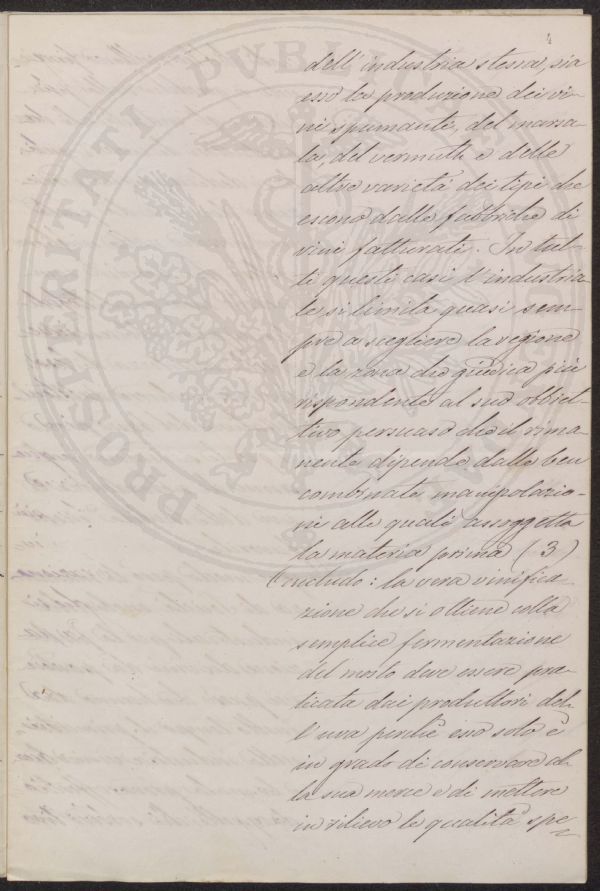 4
dell' industria stessa, sia
essa la produzione dei vi-
ni spumanti, del marsa-
la, del vermuth e delle
altre varietá dei tipi che
escono dalle fabbriche di
vini fatturati. In tut-
ti questi casi l'industria-
le si limita quasi sem-
pre a scegliere la regione
e la zona che giudica piú
rispondente al suo obbiet-
tivo persuaso che il rima-
nente dipende dalle ben
combinate manipolazio-
ni alle quali assoggetta
la materia prima (3)
Concludo: la vera vinifica-
zione che si ottiene colla
semplice fermentazione
del mosto deve essere pra-
ticata dai produttori del-
l'uva perché esso solo è
in grado di conservare al-
la sua merce e di mettere
in rilievo le qualità spe-
PROSPERITATI PVBLI